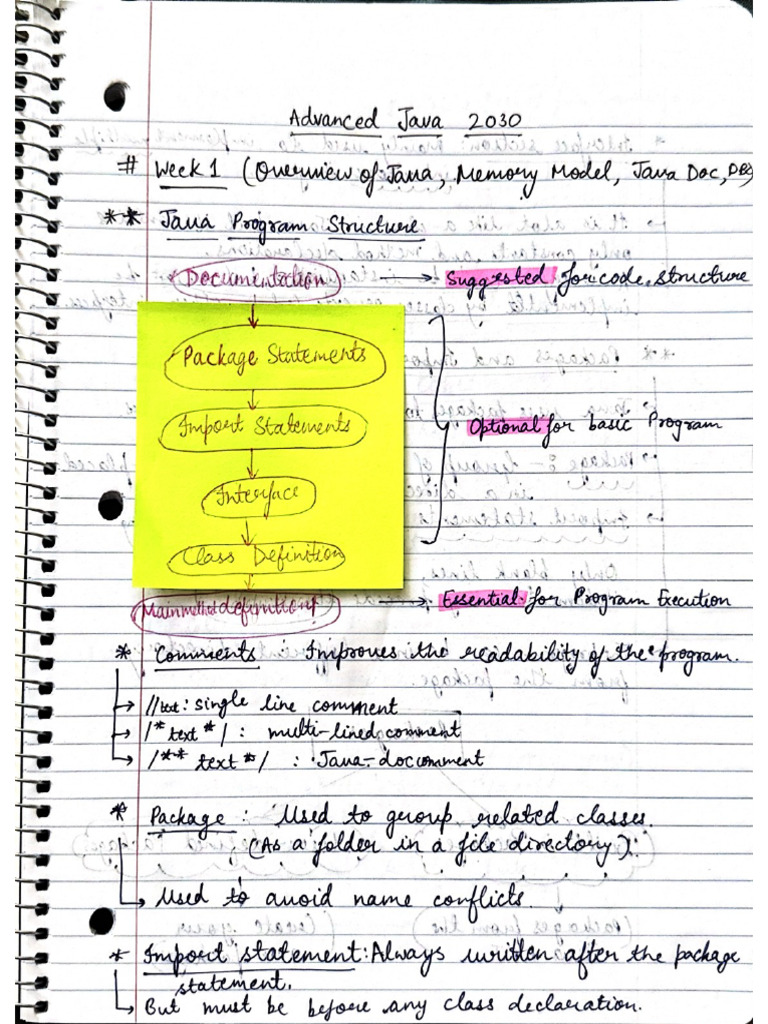 Advanced Java 2030
# Week 1 (Overview of Java, Memory Model, Java Doc, DBs)
** Java Program Structure
Documentation → Suggested for code structure
Package Statements
Import Statements
Optional for basic Program
Interface
Class Definition
Main method definition → Essential for Program Execution
* Comments : Improves the readability of the program.
→ //text: single line comment
→ /* text */ : multi-lined comment
→ /** text */ : Java-doc comment
* Package : Used to group related classes.
(As a folder in a file directory).
→ Used to avoid name conflicts.
* Import statement: Always written after the package
statement.
→ But must be before any class declaration.